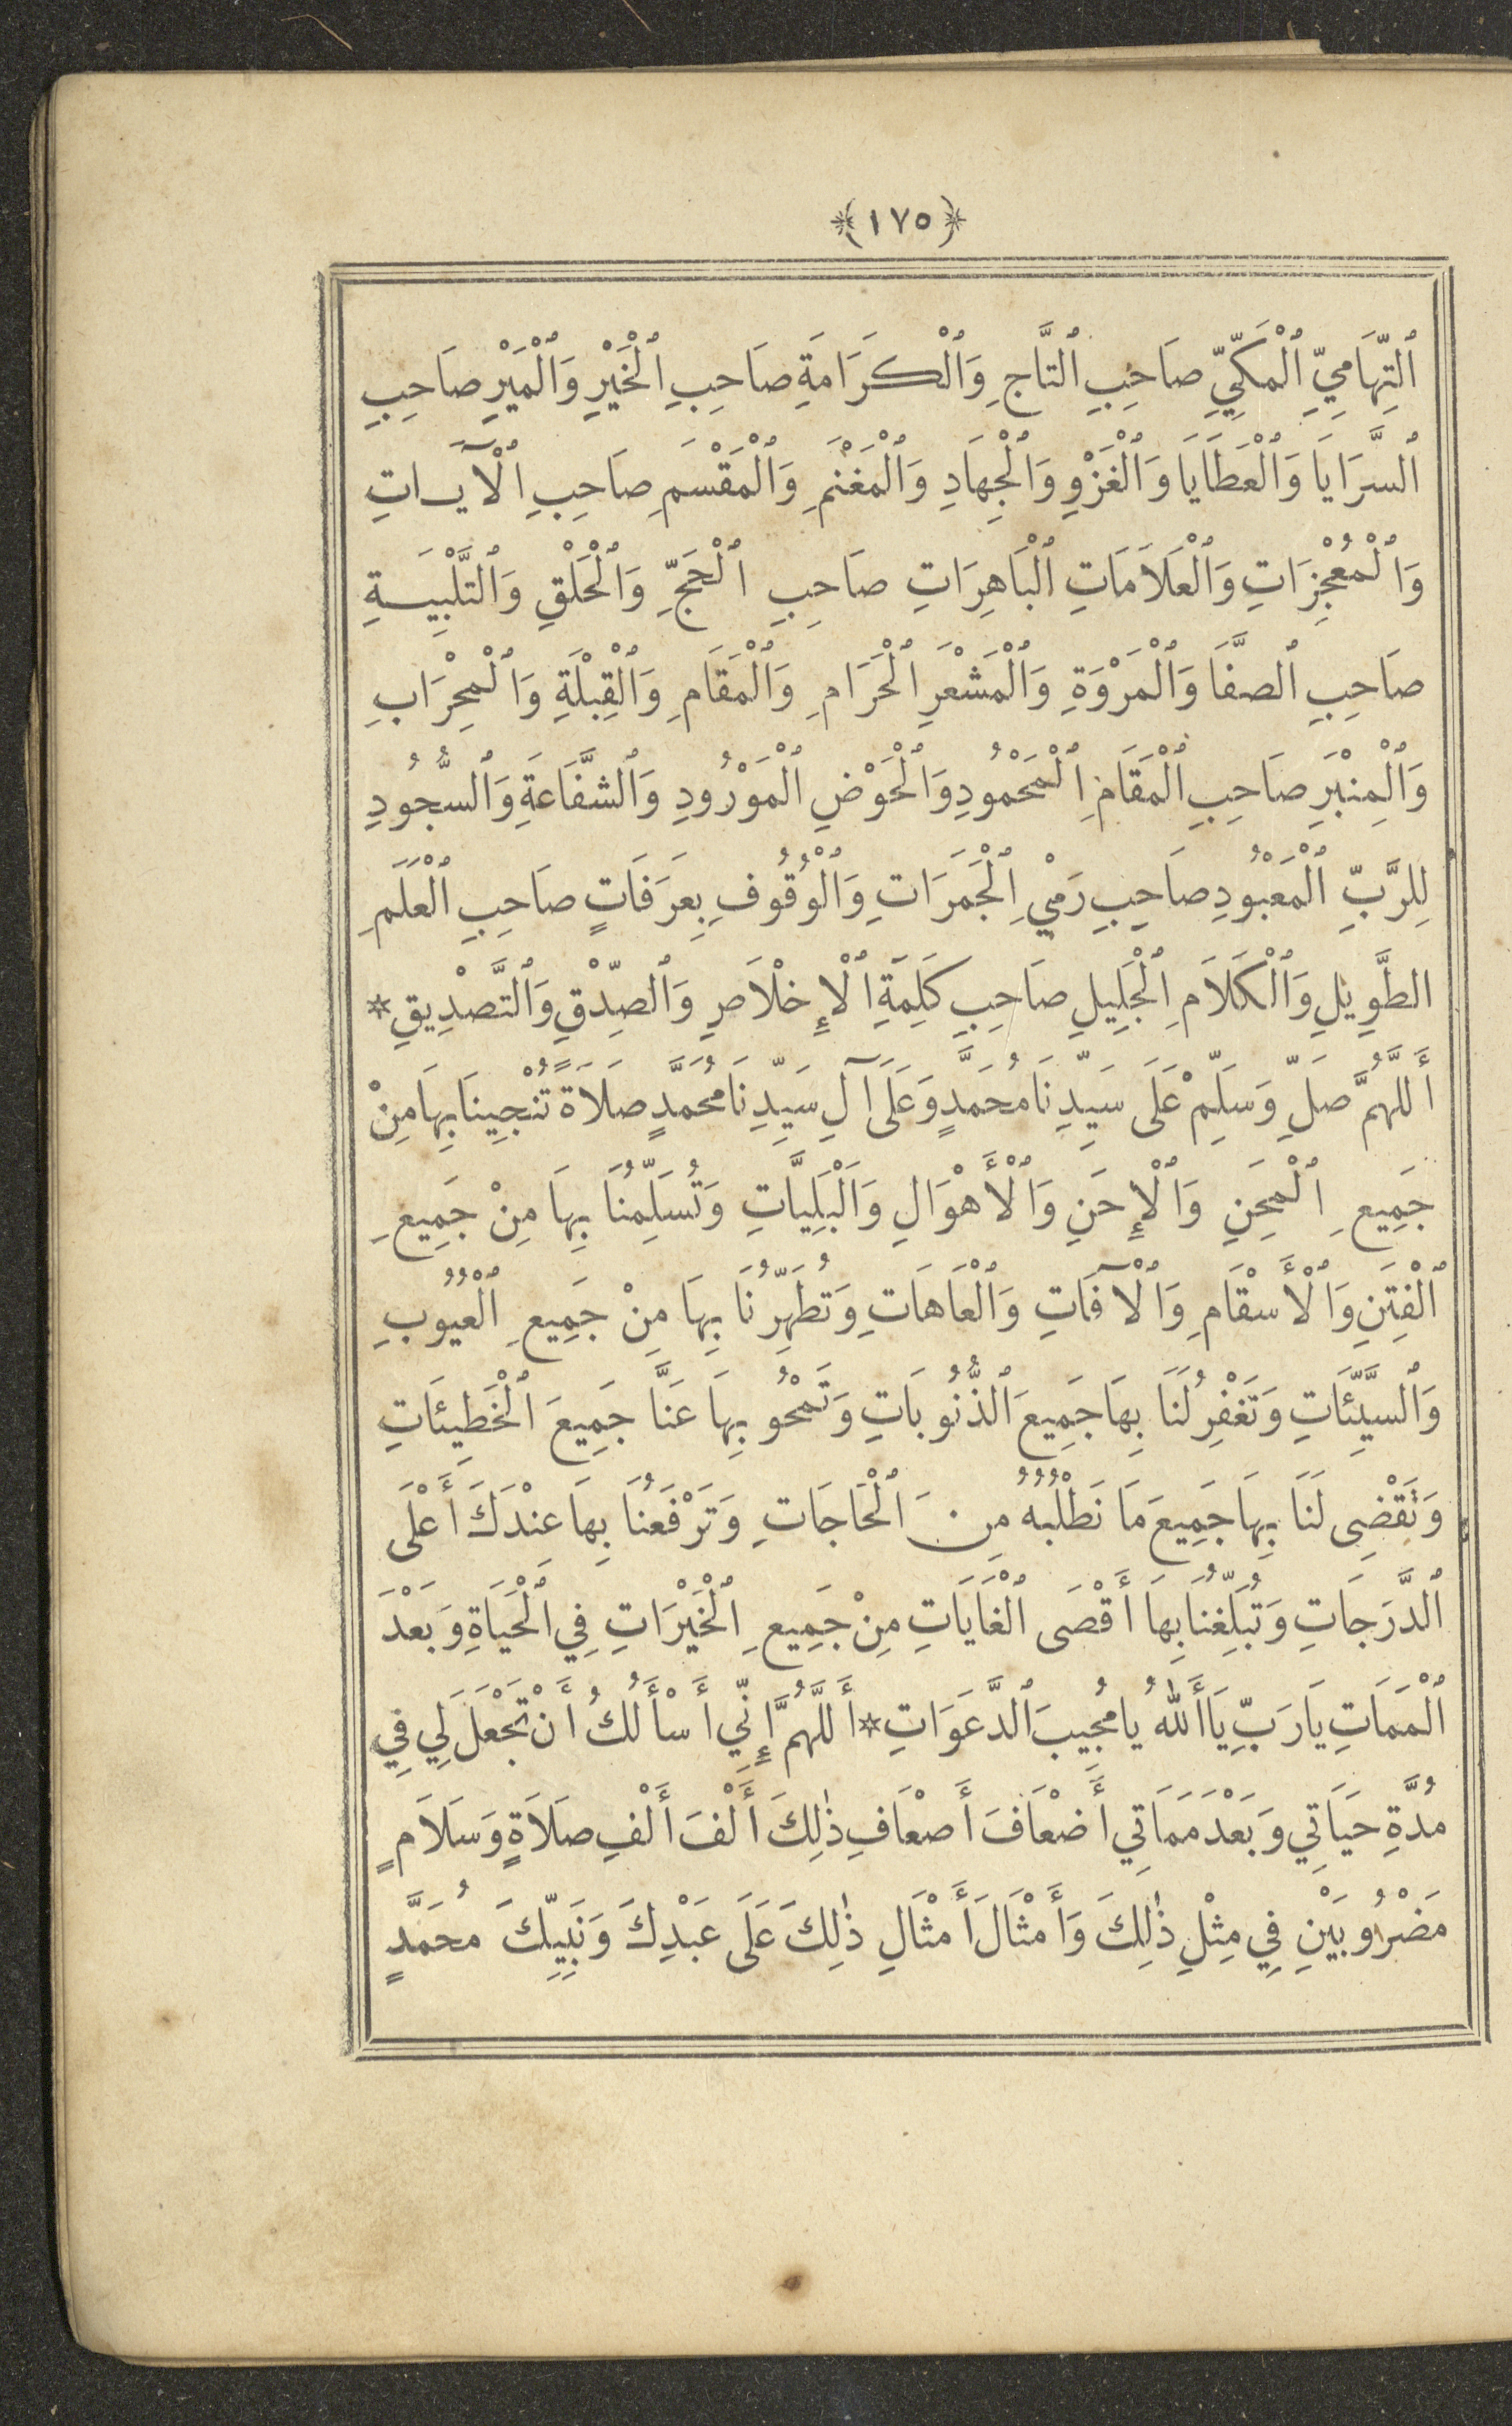 ﴿١٧٥﴾
ٱلتِّهَامِيِّ ٱلْمَكِّيِّ صَاحِبِ ٱلتَّاجِ وَٱلْكَرَامَةِ صَاحِبِ ٱلْخَيْرِ وَٱلْمَيْرِ صَاحِبِ
ٱلسَّرَايَا وَٱلْعَطَايَا وَٱلْغَزْوِ وَٱلْجِهَادِ وَٱلْمَغْنَمِ وَٱلْمَقْسَمِ صَاحِبِ ٱلْآيَاتِ
وَٱلْمُعْجِزَاتِ وَٱلْعَلَامَاتِ ٱلْبَاهِرَاتِ صَاحِبِ ٱلْحَجِّ وَٱلْحَلْقِ وَٱلتَّلْبِيَةِ
صَاحِبِ ٱلصَّفَا وَٱلْمَرْوَةِ وَٱلْمَشْعَرِ ٱلْحَرَامِ وَٱلْمَقَامِ وَٱلْقِبْلَةِ وَٱلْمِحْرَابِ
وَٱلْمِنْبَرِ صَاحِبِ ٱلْمَقَامِ ٱلْمَحْمُودِ وَٱلْحَوْضِ ٱلْمَوْرُودِ وَٱلشَّفَاعَةِ وَٱلسُّجُودِ
لِلرَّبِّ ٱلْمَعْبُودِ صَاحِبِ رَمْيِ ٱلْجَمَرَاتِ وَٱلْوُقُوفِ بِعَرَفَاتٍ صَاحِبِ ٱلْعَلَمِ
ٱلطَّوِيلِ وَٱلْكَلَامِ ٱلْجَلِيلِ صَاحِبِ كَلِمَةِ ٱلْإِخْلَاصِ وَٱلصِّدْقِ وَٱلتَّصْدِيقِ *
أَللَّهُمَّ صَلِّ وَسَلِّمْ عَلَى سَيِّدِنَا مُحَمَّدٍ وَعَلَى آلِ سَيِّدِنَا مُحَمَّدٍ صَلَاةً تُنْجِينَا بِهَا مِنْ
جَمِيعِ ٱلْمِحَنِ وَٱلْإِحَنِ وَٱلْأَهْوَالِ وَٱلْبَلِيَّاتِ وَتُسَلِّمُنَا بِهَا مِنْ جَمِيعِ
ٱلْفِتَنِ وَٱلْأَسْقَامِ وَٱلْآفَاتِ وَٱلْعَاهَاتِ وَتُطَهِّرُنَا بِهَا مِنْ جَمِيعِ ٱلْعُيُوبِ
وَٱلسَّيِّئَاتِ وَتَغْفِرُ لَنَا بِهَا جَمِيعَ ٱلذُّنُوبَاتِ وَتَمْحُو بِهَا عَنَّا جَمِيعَ ٱلْخَطِيئَاتِ
وَتَقْضِى لَنَا بِهَا جَمِيعَ مَا نَطْلُبُهُ مِنَ ٱلْحَاجَاتِ وَتَرْفَعُنَا بِهَا عِنْدَكَ أَعْلَى
ٱلدَّرَجَاتِ وَتُبَلِّغُنَا بِهَا أَقْصَى ٱلْغَايَاتِ مِنْ جَمِيعِ ٱلْخَيْرَاتِ فِي ٱلْحَيَاةِ وَبَعْدَ
ٱلْمَمَاتِ يَا رَبِّ يَا أَللهُ يَا مُجِيبَ ٱلدَّعَوَاتِ * أَللَّهُمَّ إِنِّي أَسْأَلُكَ أَنْ تَجْعَلَ لِي فِي
مُدَّةِ حَيَاتِي وَبَعْدَ مَمَاتِي أَضْعَافَ أَضْعَافِ ذٰلِكَ أَلْفَ أَلْفِ صَلَاةٍ وَسَلَامٍ
مَضْرُوبَيْنِ فِي مِثْلِ ذٰلِكَ وَأَمْثَالَ أَمْثَالِ ذٰلِكَ عَلَى عَبْدِكَ وَنَبِيِّكَ مُحَمَّدٍ